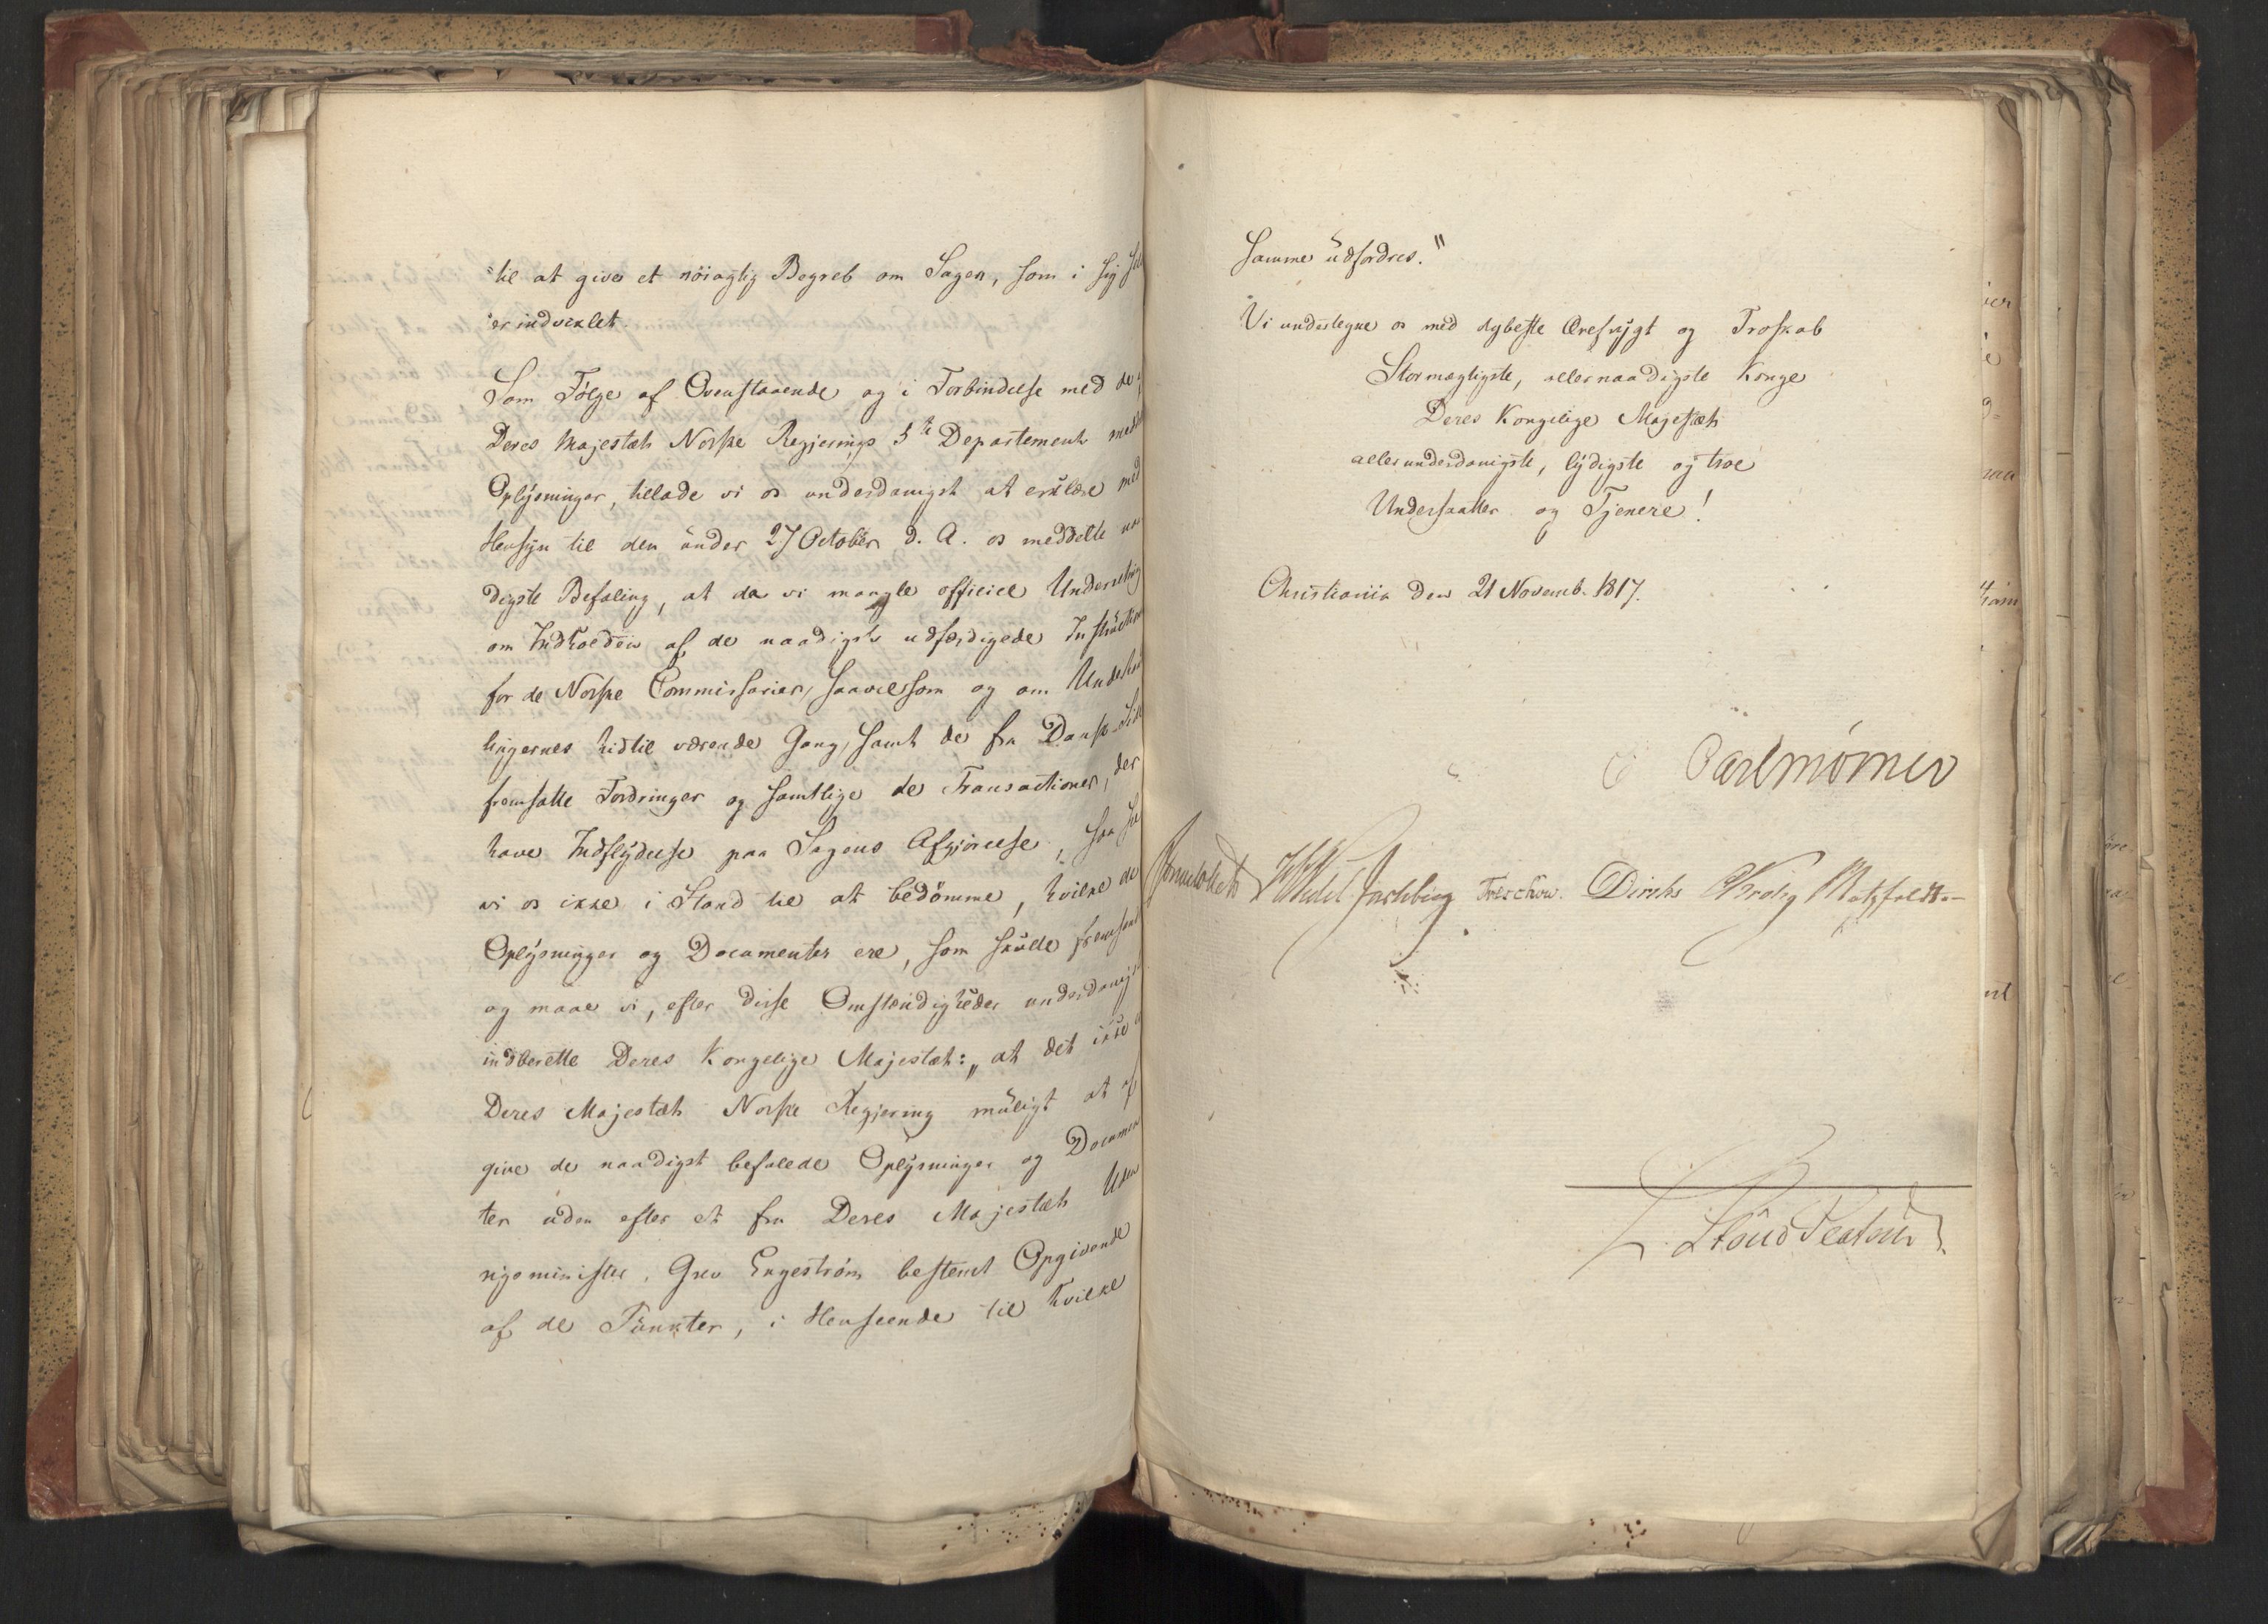 "til at give et nöiagtig Begreb om Sagen, som i sig
"er indviklet.
Som Følge af Ovenstaaende og i Forbindelse med de
Deres Majestæts Norske Regjerings 5te Departement
Oplysninger, tillade vi os underdanigst at erklære med
Hensyn til den under 27 October d. A. os meddelte naa
digste Befaling, at da vi mangle officiel Underretning
om Indholden af de naadigst udfærdigede Instruction
for de Norske Commissarier, saavelsom og om Underhand
lingernes hidtil værende Gang, samt de fra Dansk Side
fremsatte Fordringer og samtlige de Transactioner, der
have Indflydelse paa Sagens Afgjørelse, saa see
vi os ikke i Stand til at bedömme, hvilke de
Oplysninger og Documenter ere, som skulle fremsend
og maae vi, efter disse Omstændigheder underdanigst
indberette Deres Kongelige Majestæt: „at det ikke
Deres Majestæts Norske Regjering muligt at af
give de naadigst befalede Oplysninger og Documen
ter uden efter et fra Deres Majestæts Uden
rigsminister, Grev Engestrøm bestemt Opgivende
af de Punkter, i Henseende til hvilke
samme udfordres."
Vi undertegne os med dybeste Ærefrygt og Troskab
Stormægtigste, allernaadigste Konge
Deres Kongelige Majestæts
allerunderdanigste, lydigste og troe
Undersaatter og Tjenere!
Christiania den 21 Novemb. 1817.
Carl Mörner
Sommerhielm Wedel Jarlsberg Treschow. Diriks Krohg Motzfeldt